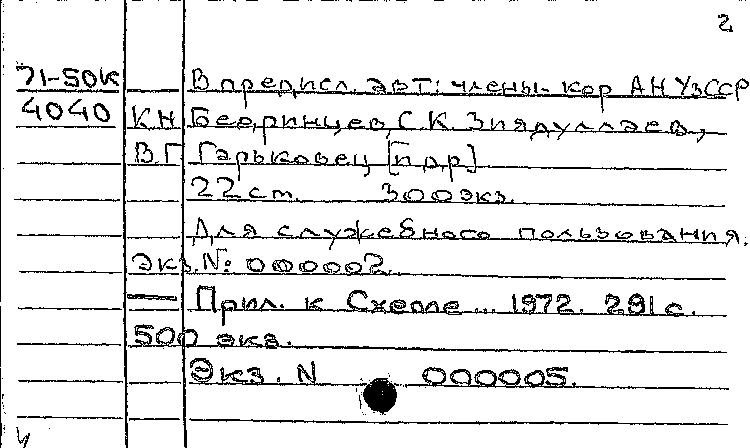 2
71-50к В предисл. авт: члены-кор АН УзССР
4040 К.Н. Бедринцев, С.К. Зиядуллаев,
В.Г. Гарьковец [и др]
22 cm. 300 экз.
Для служебного пользования.
Экз. №: 000002.
— Прил. к Схеме... 1972. 291 с.
500 экз.
Экз. N 000005.